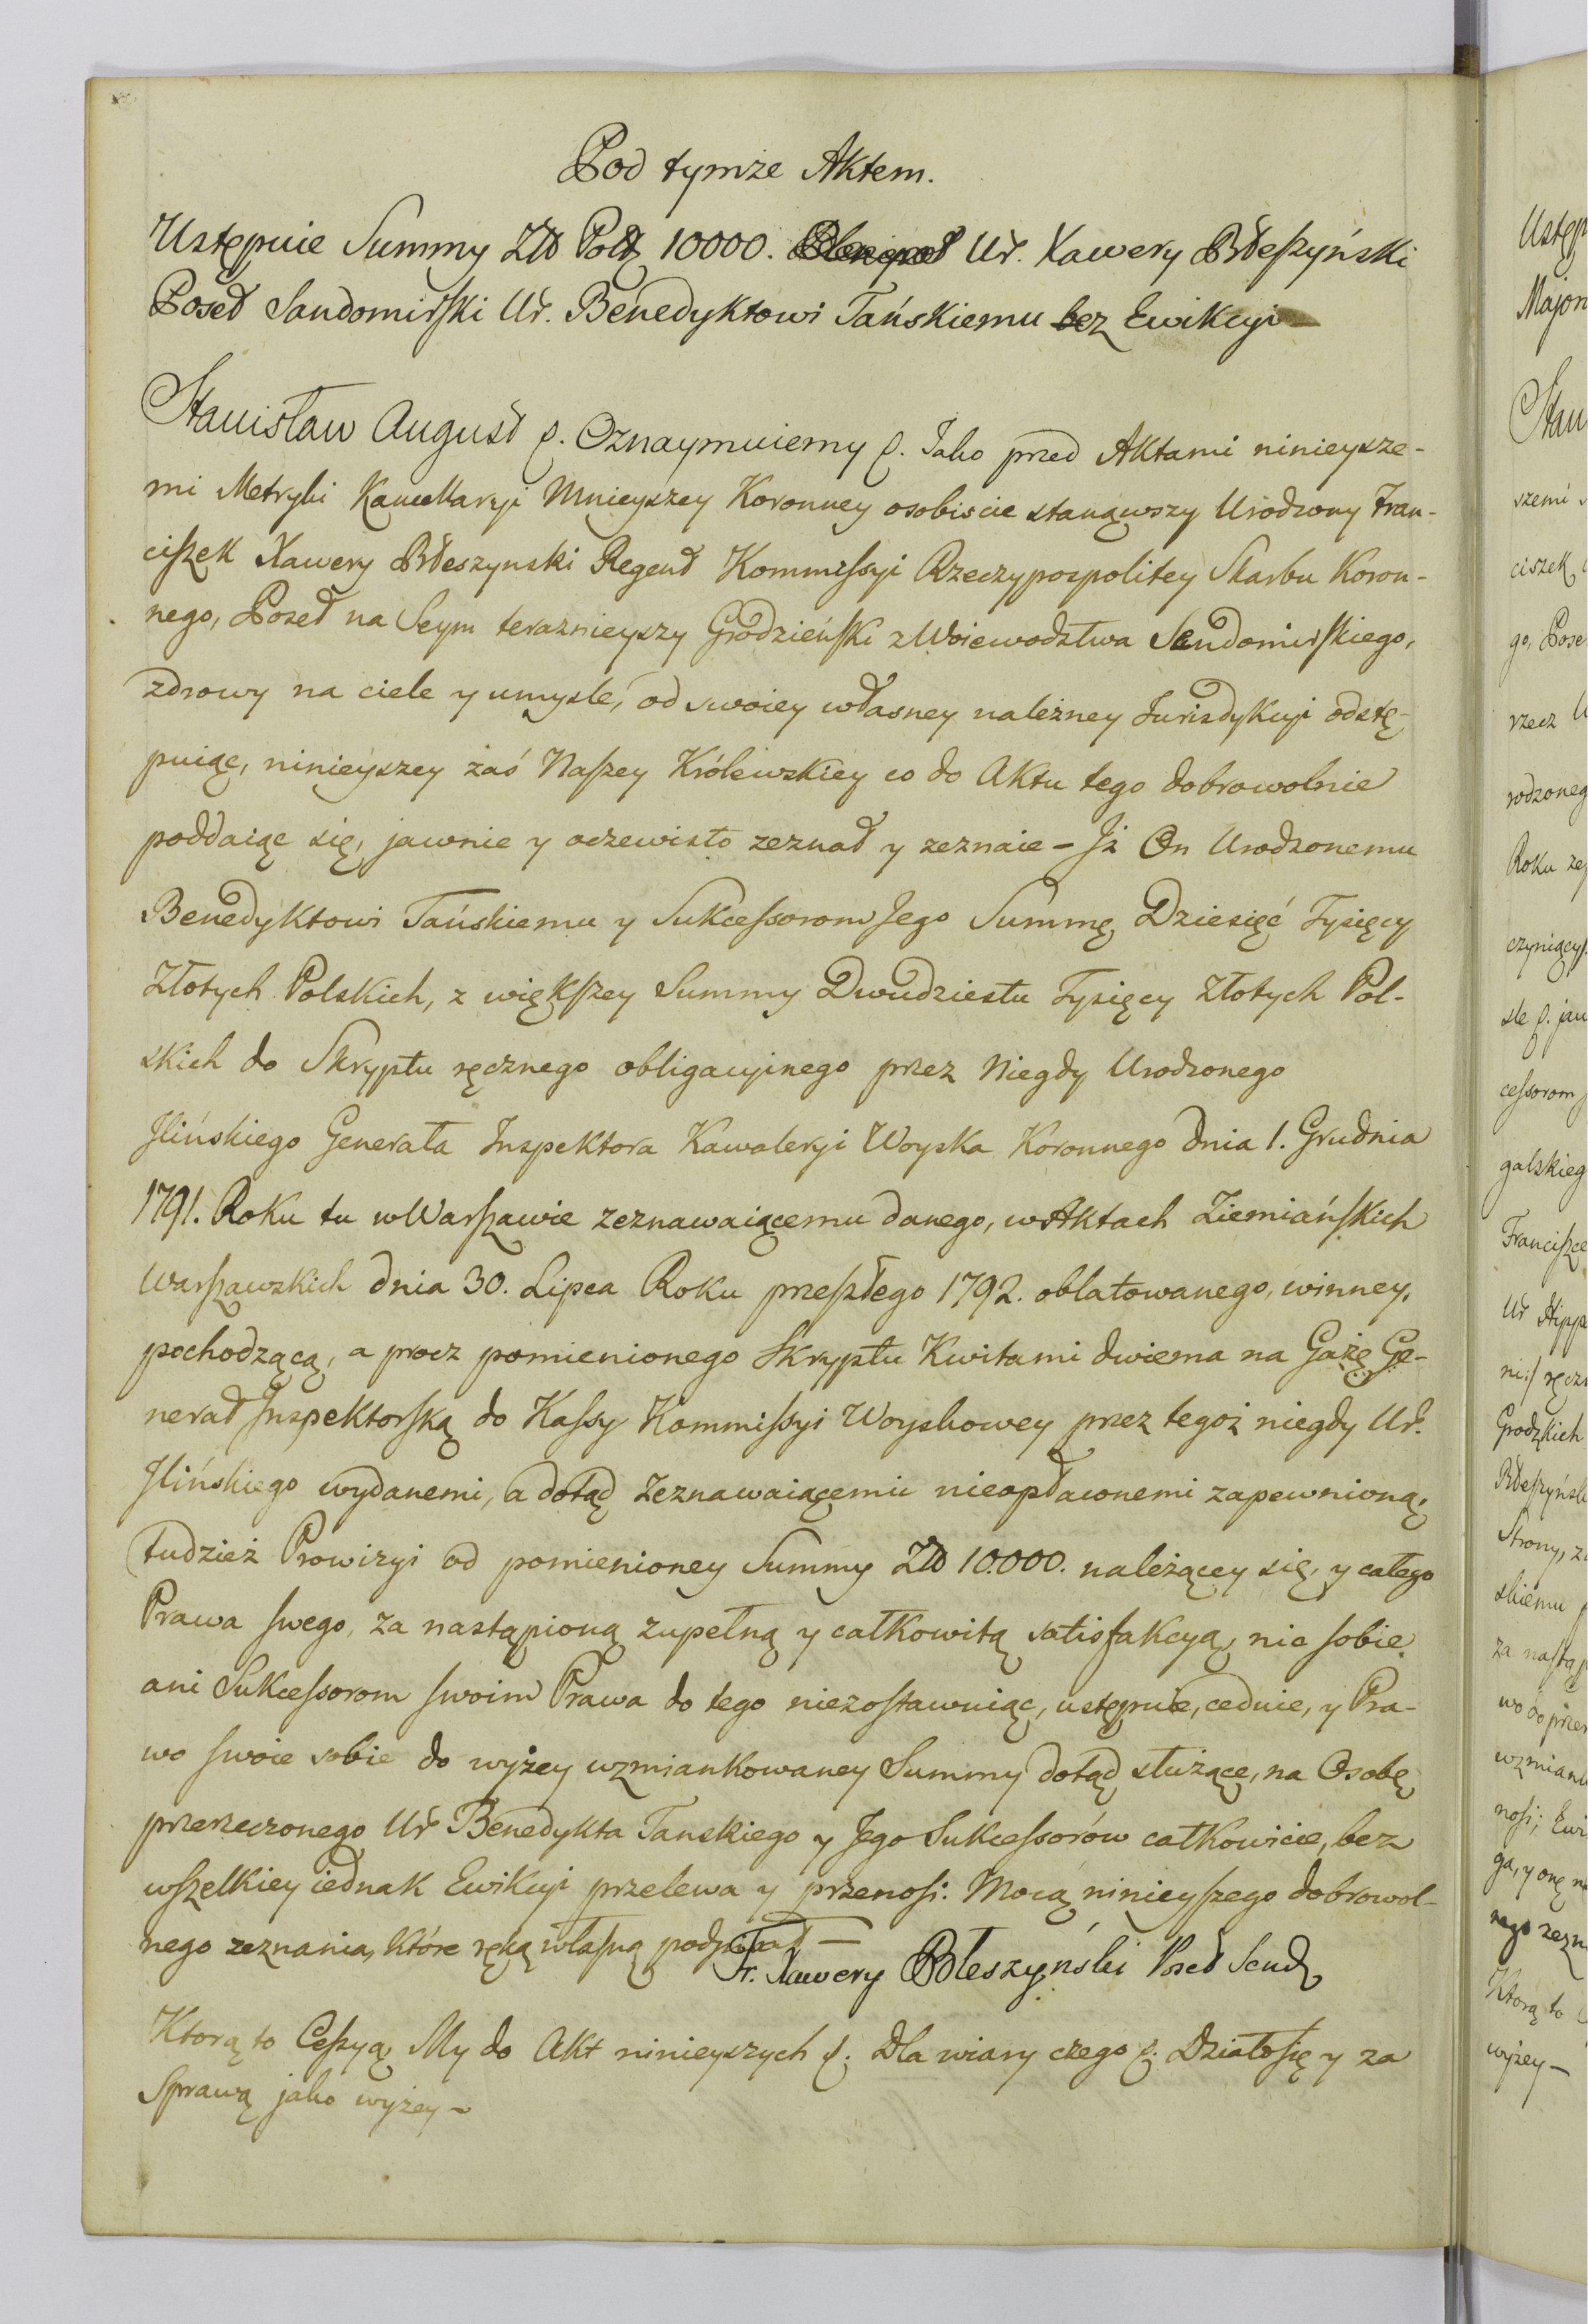 Pod tymże Aktem.
Ustępuie Summy Złł Polł 10000. Ur. Xawery Błeszyński
Poseł Sandomirski Ur. Benedyktowi Tańskiemu bez Ewikcyi
Stanisław August p. Oznaymuiemy p. Jako przed Aktami ninieysze-
mi Metryki Kancellaryi Mnieyszey Koronney osobiscie stanąwszy Urodzony Fran-
ciszek Xawery Błeszynski Regent Kommissyi Rzeczypospolitey Skarbu Koron-
nego, Poseł na Seym teraznieyszy Grodzieński z Woiewodztwa Sendomirskiego,
zdrowy na ciele y umysle, od swoiey własney należney Jurisdykcyi odstę-
puiąc, ninieyszey zaś Naszey Królewskiey co do Aktu tego dobrowolnie
poddaiąc się, jawnie y oczewisto zeznał y zeznaie – Iż On Urodzonemu
Benedyktowi Tańskiemu y Sukcessorom Jego Summę Dziesięć Tysięcy
Złotych Polskich, z większey Summy Dwudziestu Tysięcy Złotych Pol-
skich do Skryptu ręcznego obligacyinego przez Niegdy Urodzonego
Jlińskiego Generała Inspektora Kawaleryi Woyska Koronnego dnia 1. Grudnia
1791. Roku tu w Warszawie zeznawaiącemu danego, w Aktach Ziemiańskich
Warszawskich dnia 30. Lipca Roku przeszłego 1792. oblatowanego, winney,
pochodzącą, a procz pomienionego Skryptu Kwitami dwiema na Gażę Ge-
nerał Inspektorską do Kassy Kommissyi Woyskowey przez tegoż niegdy Ur.
Jlińskiego wydanemi, a dotąd Zeznawaiącemu nieopłaconemi zapewnioną,
tudzież Prowizyi od pomienioney Summy Złł 10.000. należącey się, y całego
Prawa swego, za nastąpioną zupełną y całkowitą satisfakcyą, nic sobie
ani Sukcessorom swoim Prawa do tego niezostawuiąc, ustępuie, ceduie, y Pra-
wo swoie sobie do wyżey wzmiankowaney Summy dotąd służące, na Osobę
przerzeczonego Ur Benedykta Tanskiego y Jego Sukcessorów całkowicie, bez
wszelkiey iednak Ewikcyi przelewa y przenosi. Mocą ninieyszego dobrowol-
nego zeznania, które ręką własną podpisał –
Fr. Xawery Błeszyński Poseł Send
Ktorą to Cessyą My do Akt ninieyszych p. Dla wiary czego p. Działo się y za
Sprawą jako wyżey –
Ustęp
Major
Stan
szemi
ciszek
go, Pose
rzecz U
rodzoneg
Roku ze
czyniący
sle p. jaw
cessorom
galskieg
Francisze
Ur Hipp
ni:/ ręcz
Grodzkich
Błeszyńsk
Strony, z
skiemu
za nastąp
wo do przer
wzmiank
nosi; Ewi
ga, y onę n
nego zezn
Ktorą to
wyżey –